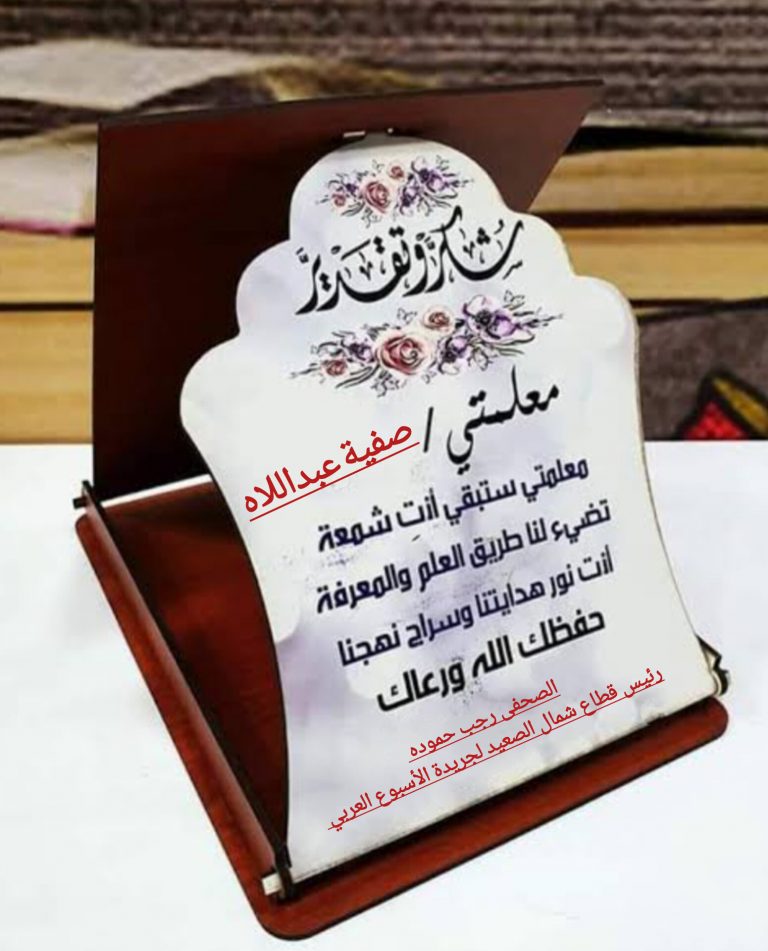 شكر وتقدير
معلمتي / صفية عبداللاه
معلمتي ستبقي أنتِ شمعة
تضيء لنا طريق العلم والمعرفة
أنت نور هدايتنا وسراج نهجنا
حفظك الله ورعاك
الصحفى رجب حموده
رئيس قطاع شمال الصعيد لجريدة الأسبوع العربي